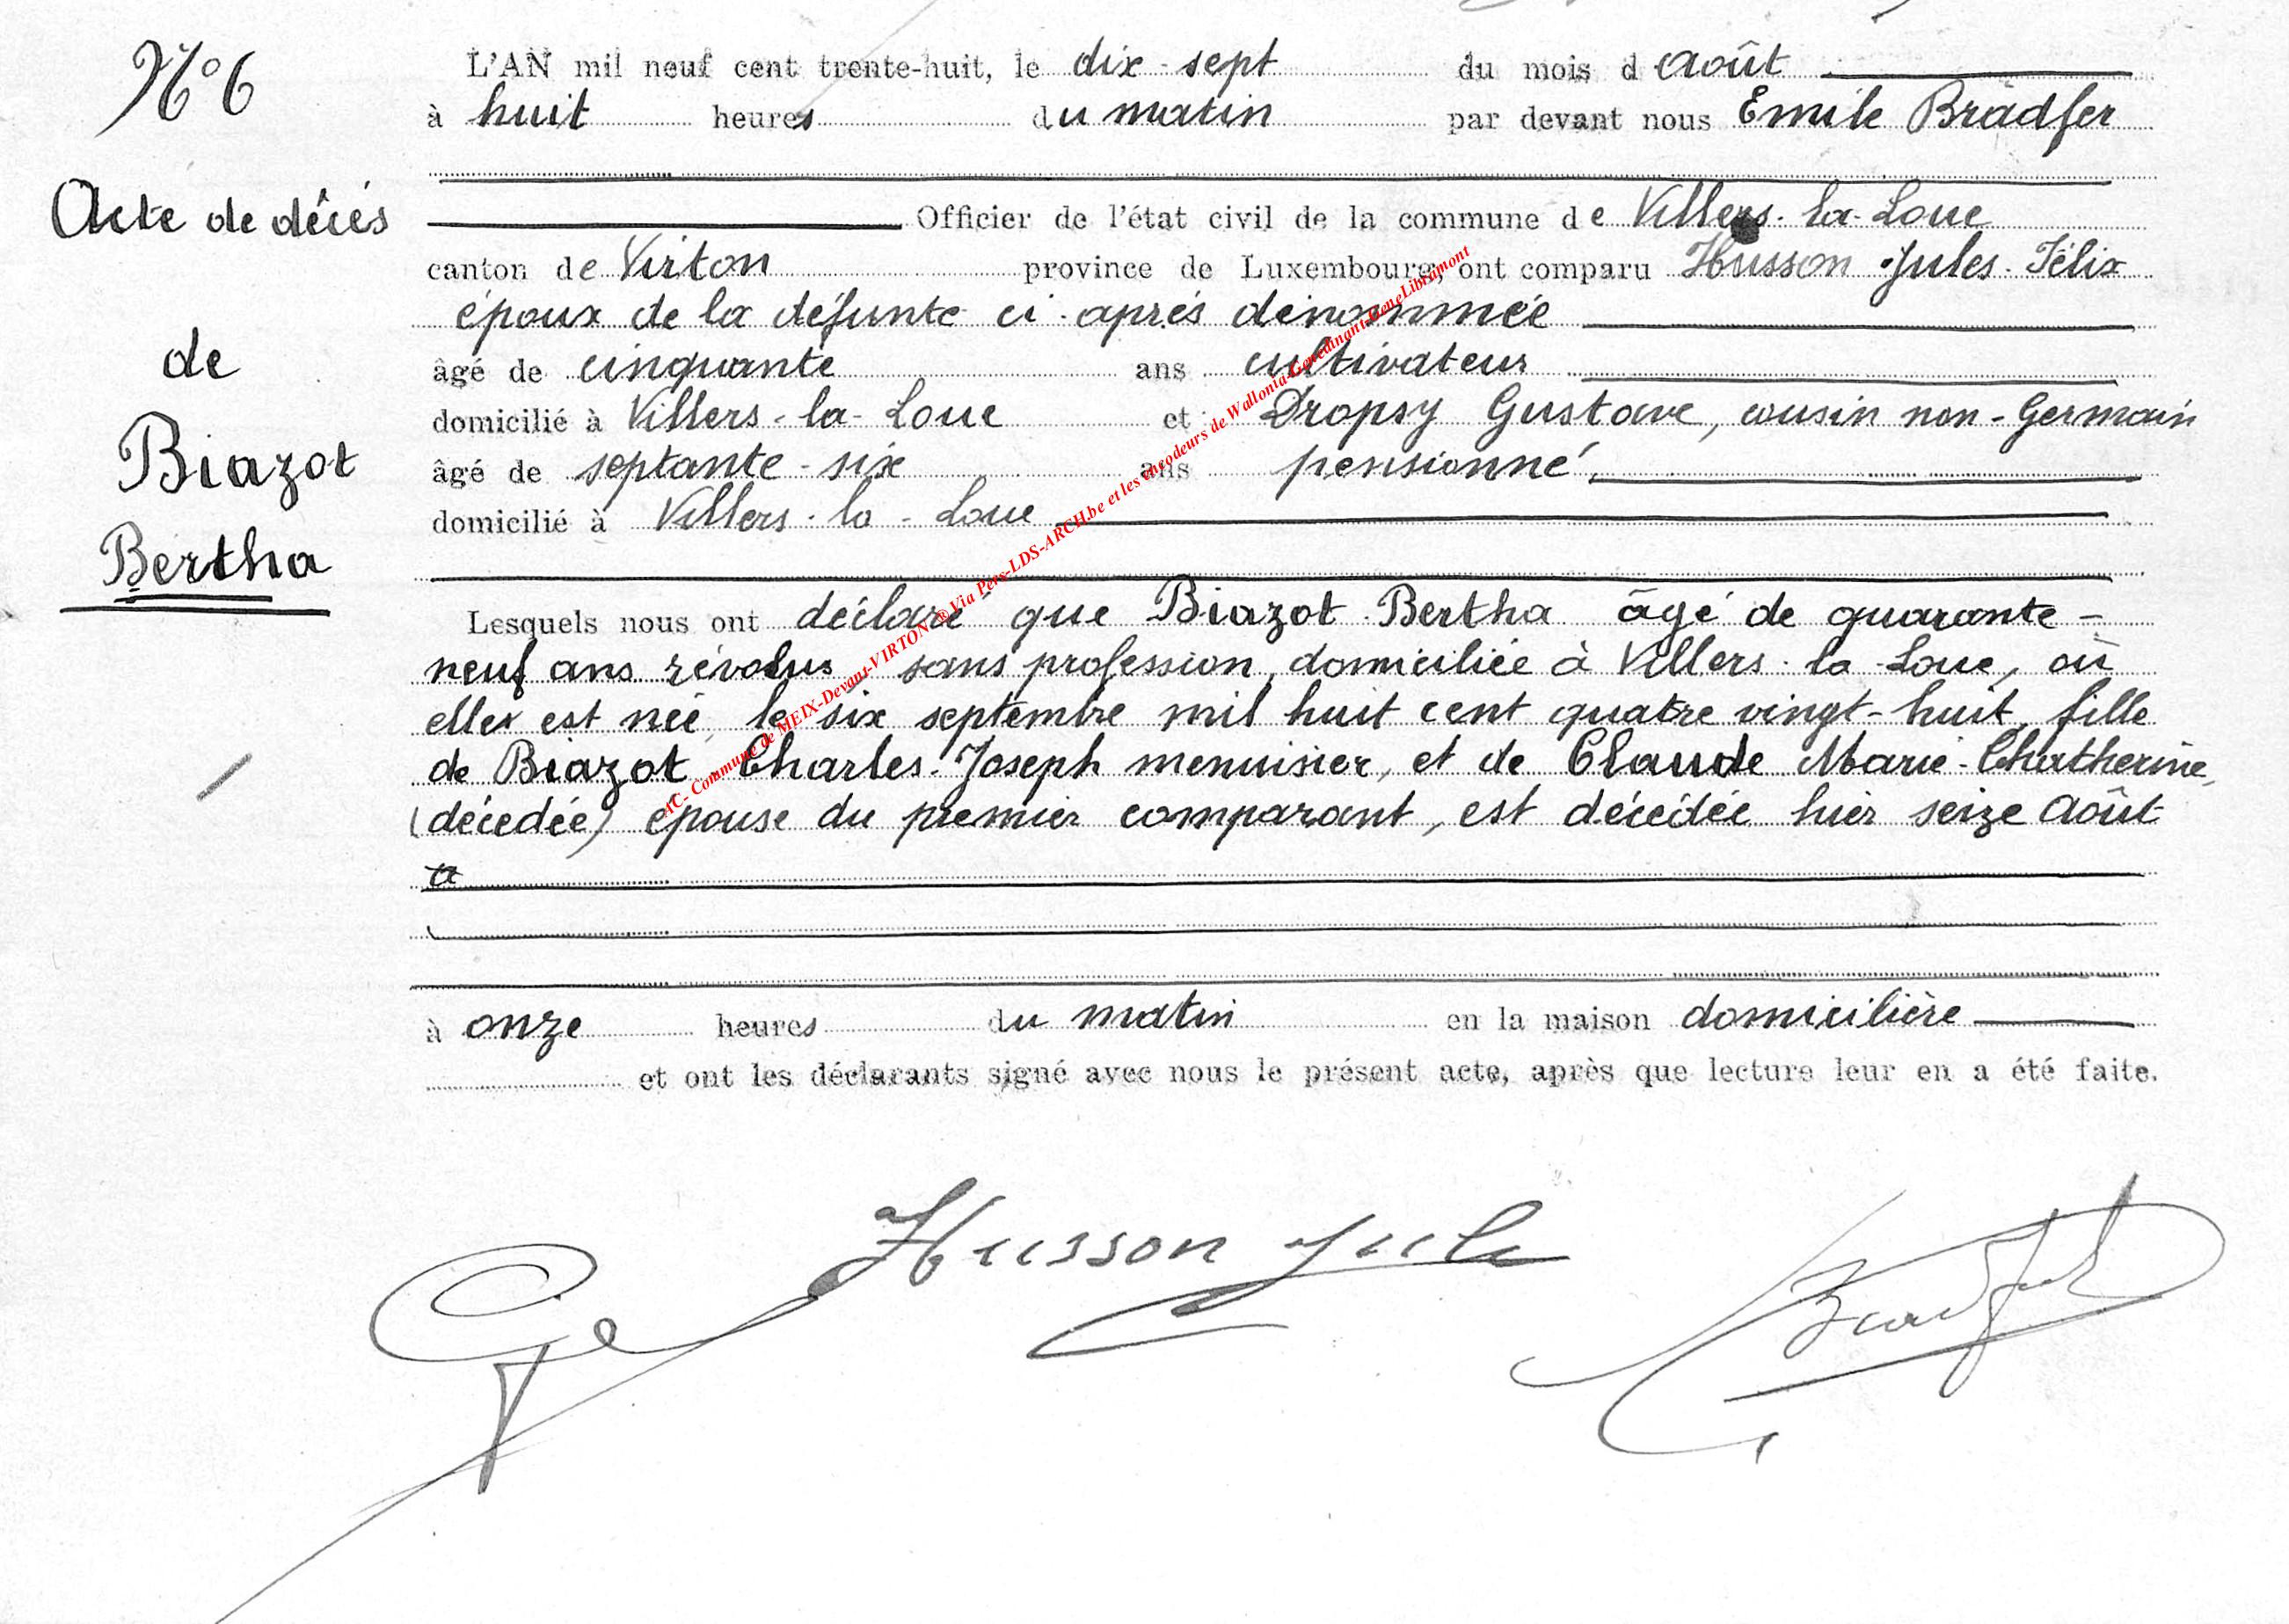 N° 6
Acte de décès
de
Biazot
Bertha
L'AN mil neuf cent trente-huit, le dix-sept du mois d Août
à huit heures du matin par devant nous Emile Bradfer
Officier de l'état civil de la commune de Villers-la-Loue
canton de Virton province de Luxembourg, ont comparu Husson Jules-Félix
époux de la défunte ci-après dénommée
âgé de cinquante ans cultivateur
domicilié à Villers-la-Loue et Dropsy Gustave, cousin non-Germain
âgé de septante-six ans pensionné,
domicilié à Villers-la-Loue
Lesquels nous ont déclaré que Biazot Bertha âgé de quarante-
neuf ans révolus sans profession, domiciliée à Villers-la-Loue, où
elle est née, le six septembre mil huit cent quatre vingt-huit, fille
de Biazot Charles-Joseph menuisier, et de Claude Marie-Chatherine,
(décedée) épouse du premier comparant, est décédée hier seize Août
à onze heures du matin en la maison domicilière
et ont les déclarants signé avec nous le présent acte, après que lecture leur en a été faite.
Husson Jules
Bradfer
AC- Commune de MEIX-Devant-VIRTON ® Via Pers-LDS-ARCH.be et les encodeurs de Wallonia-Genedinant-GeneLibramont